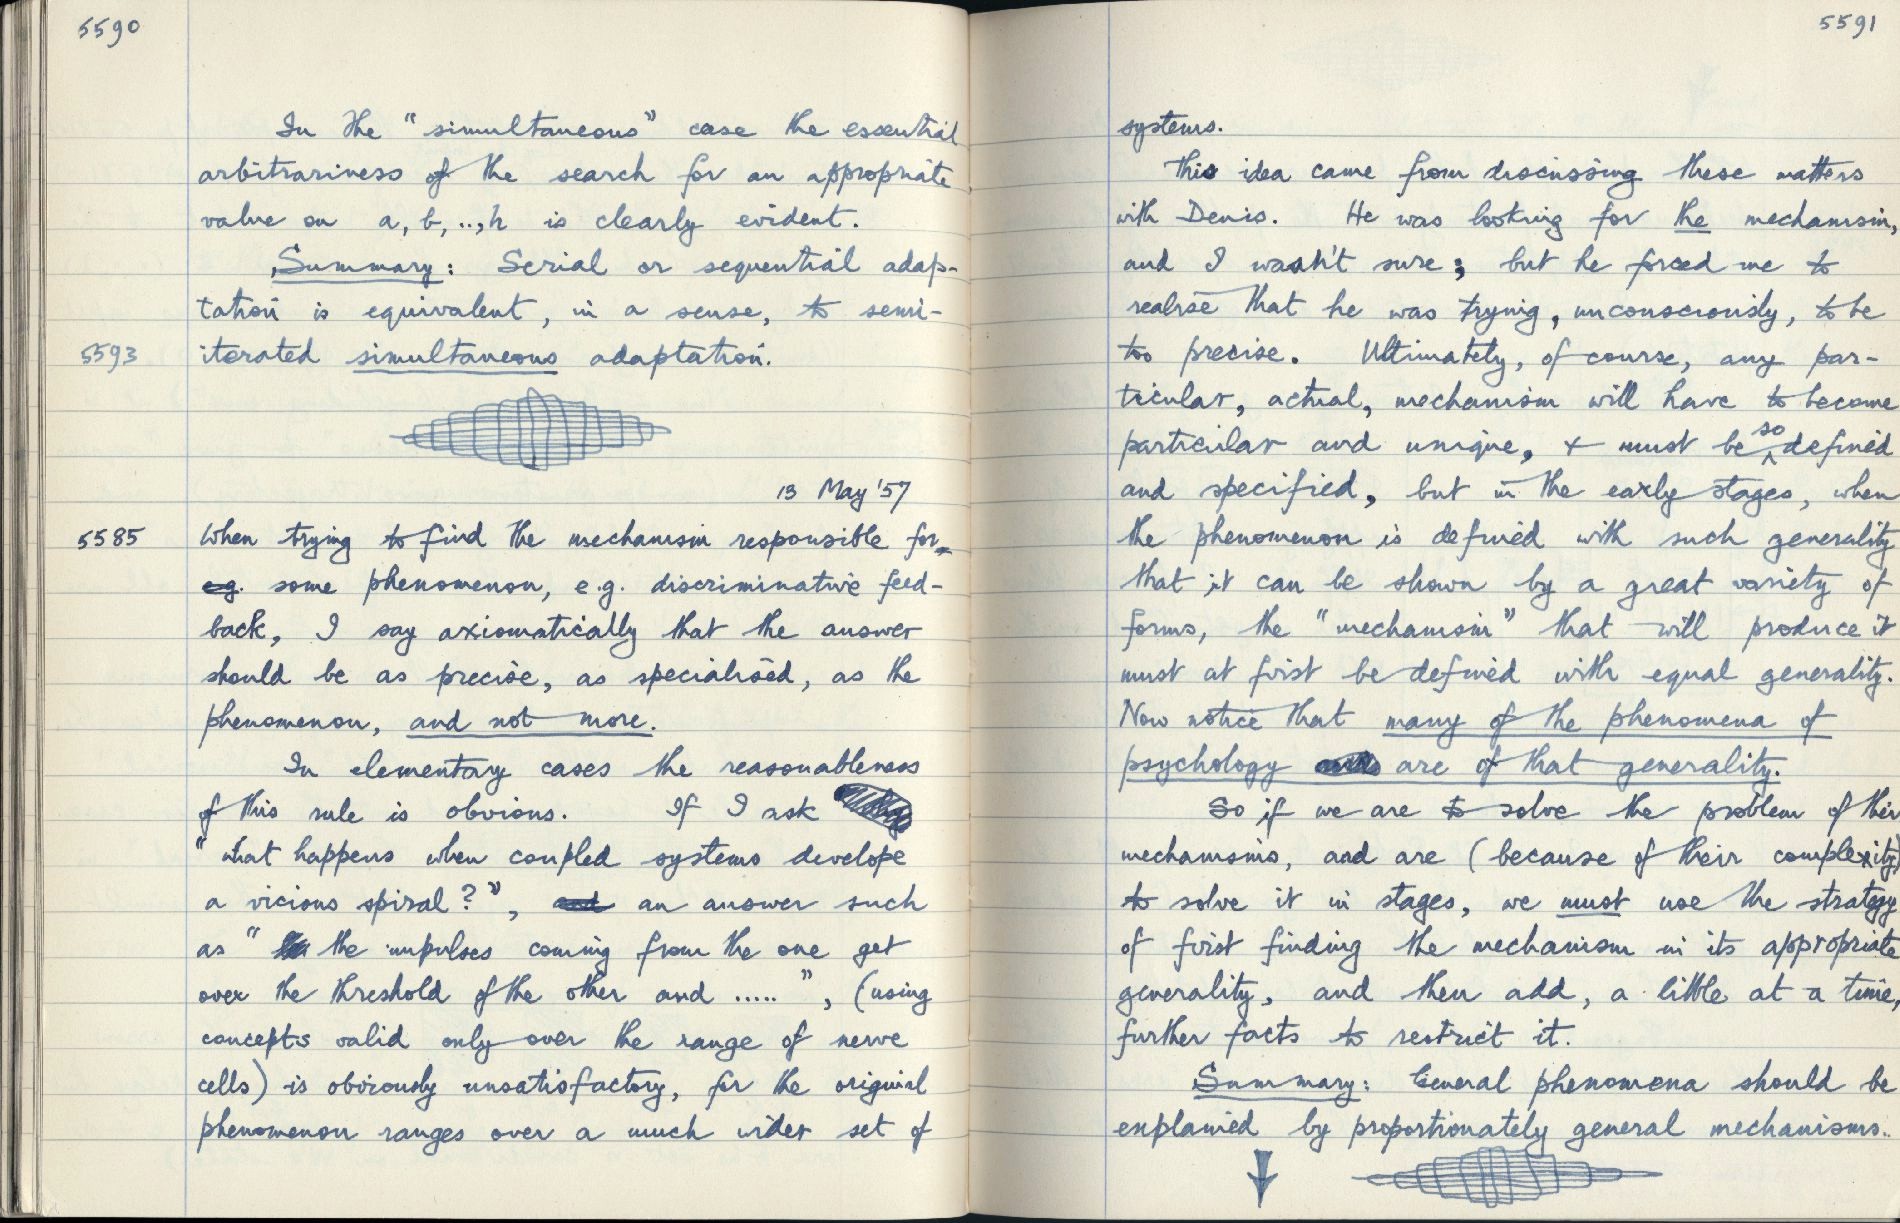 5590
In the "simultaneous" case the essential
arbitrariness of the search for an appropriate
value on a, b, .., h is clearly evident.
Summary: Serial or sequential adap-
tation is equivalent, in a sense, to semi-
5593 iterated simultaneous adaptation.
13 May '57
5585 When trying to find the mechanism responsible for
e.g. some phenomenon, e.g. discriminative feed-
back, I say axiomatically that the answer
should be as precise, as specialised, as the
phenomenon, and not more.
In elementary cases the reasonableness
of this rule is obvious. If I ask
"what happens when coupled systems develope
a vicious spiral?", and an answer such
as " the impulses coming from the one get
over the threshold of the other and ..... ", (using
concepts valid only over the range of nerve
cells) is obviously unsatisfactory, for the original
phenomenon ranges over a much wider set of
5591
systems.
This idea came from discussing these matters
with Denis. He was looking for the mechanism,
and I wasn't sure; but he forced me to
realise that he was trying, unconsciously, to be
too precise. Ultimately, of course, any par-
ticular, actual, mechanism will have to become
particular and unique, & must be so defined
and specified, but in the early stages, when
the phenomenon is defined with such generality
that it can be shown by a great variety of
forms, the "mechanism" that will produce it
must at first be defined with equal generality.
Now notice that many of the phenomena of
psychology are of that generality.
So if we are to solve the problem of their
mechanisms, and are (because of their complexity)
to solve it in stages, we must use the strategy
of first finding the mechanism in its appropriate
generality, and then add, a little at a time,
further facts to restrict it.
Summary: General phenomena should be
explained by proportionately general mechanisms.